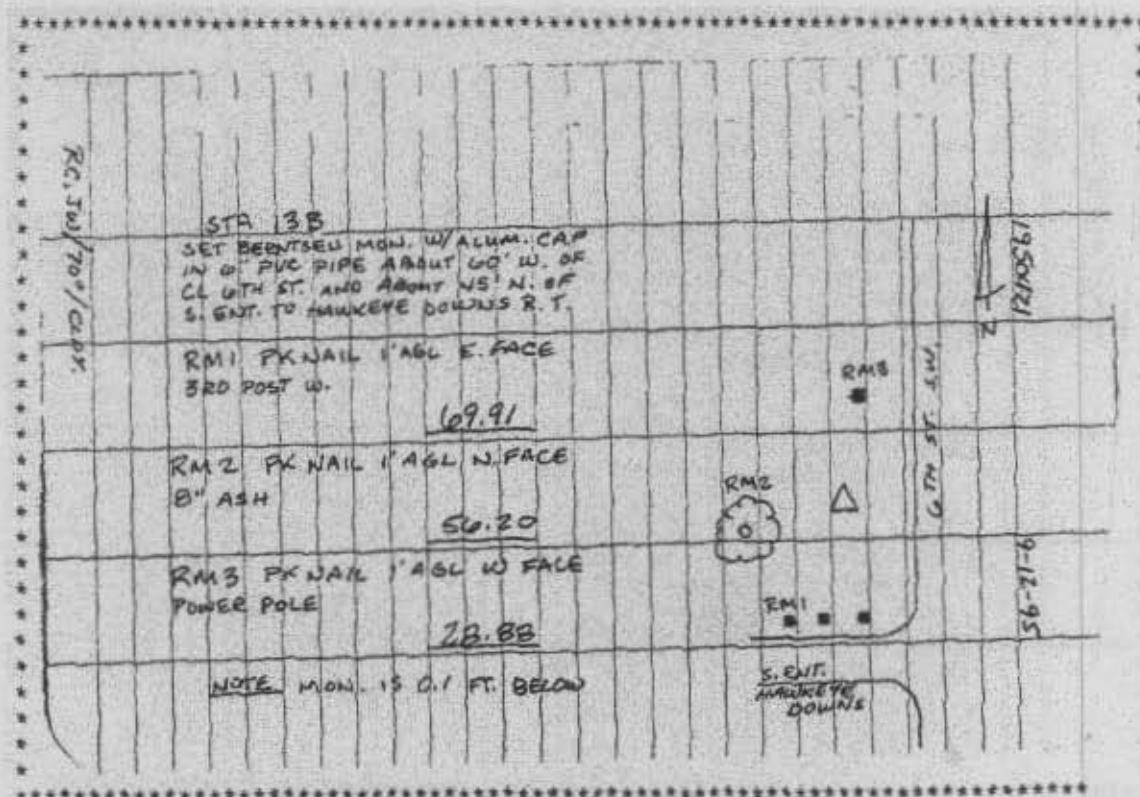 STA 13B
SET BERNTSEN MON. W/ALUM. CAP
IN 6" PVC PIPE ABOUT 60' W. OF
CL 6TH ST. AND ABOUT 45' N. OF
S. ENT. TO HAWKEYE DOWNS R.T.
RM1 PK NAIL 1' AGL E. FACE
3RD POST W.
69.91
RM2 PK NAIL 1' AGL N. FACE
8" ASH
56.20
RM3 PK NAIL 1' AGL W FACE
POWER POLE
28.88
NOTE MON. IS 0.1 FT. BELOW
RM3
RM2
RM1
S. ENT.
HAWKEYE
DOWNS
6TH ST. S.W.
N
1950121
9-21-95